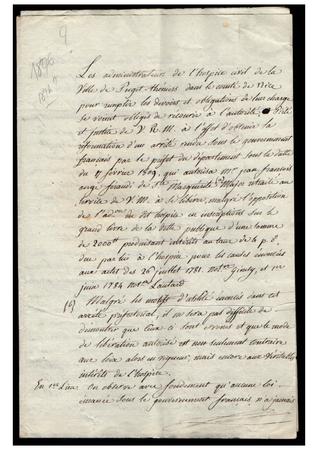 9
1896
Les administrateurs de l'hospice civil de la
Ville de Puget-Theniers dans le comté de Nice
pour remplir les devoirs et obligations de leur charge
se voient obligés de recourir à l'autorité, Piété
et justice de V. R. M. à l'effet d'obtenir la
réformation d'un arrêté rendu sous le gouvernement
français par le préfet du département sous la date
du 7 fevrier 1809, qui autorisa Mr jean françois
ange feraudi de Ste Marguerite Major retraité au
service de V. M. à se libérer, malgré l'opposition
de l'adon du dit hospice en inscription sur le
grand livre de la dette publique d'une somme
de 2000 produisant intérêts au taux de 4 p. %
due par lui à l'hospice pour les causes énoncées
aux actes des 26 juillet 1781. notre Ginly, et 1er
juin 1784 notre Lautard
Malgré les motifs d'utilité énoncés dans cet
arrêté préfectorial, il ne sera pas difficile de
démontrer que ceux ci sont erronés et que le mode
de libération autorisé est non seulement contraire
aux lois alors en vigueur, mais encore aux véritables
intérêts de l'hospice.
En 1er Lieu On observe avec fondement qu'aucune loi
émanée sous le gouvernement français, n'a jamais